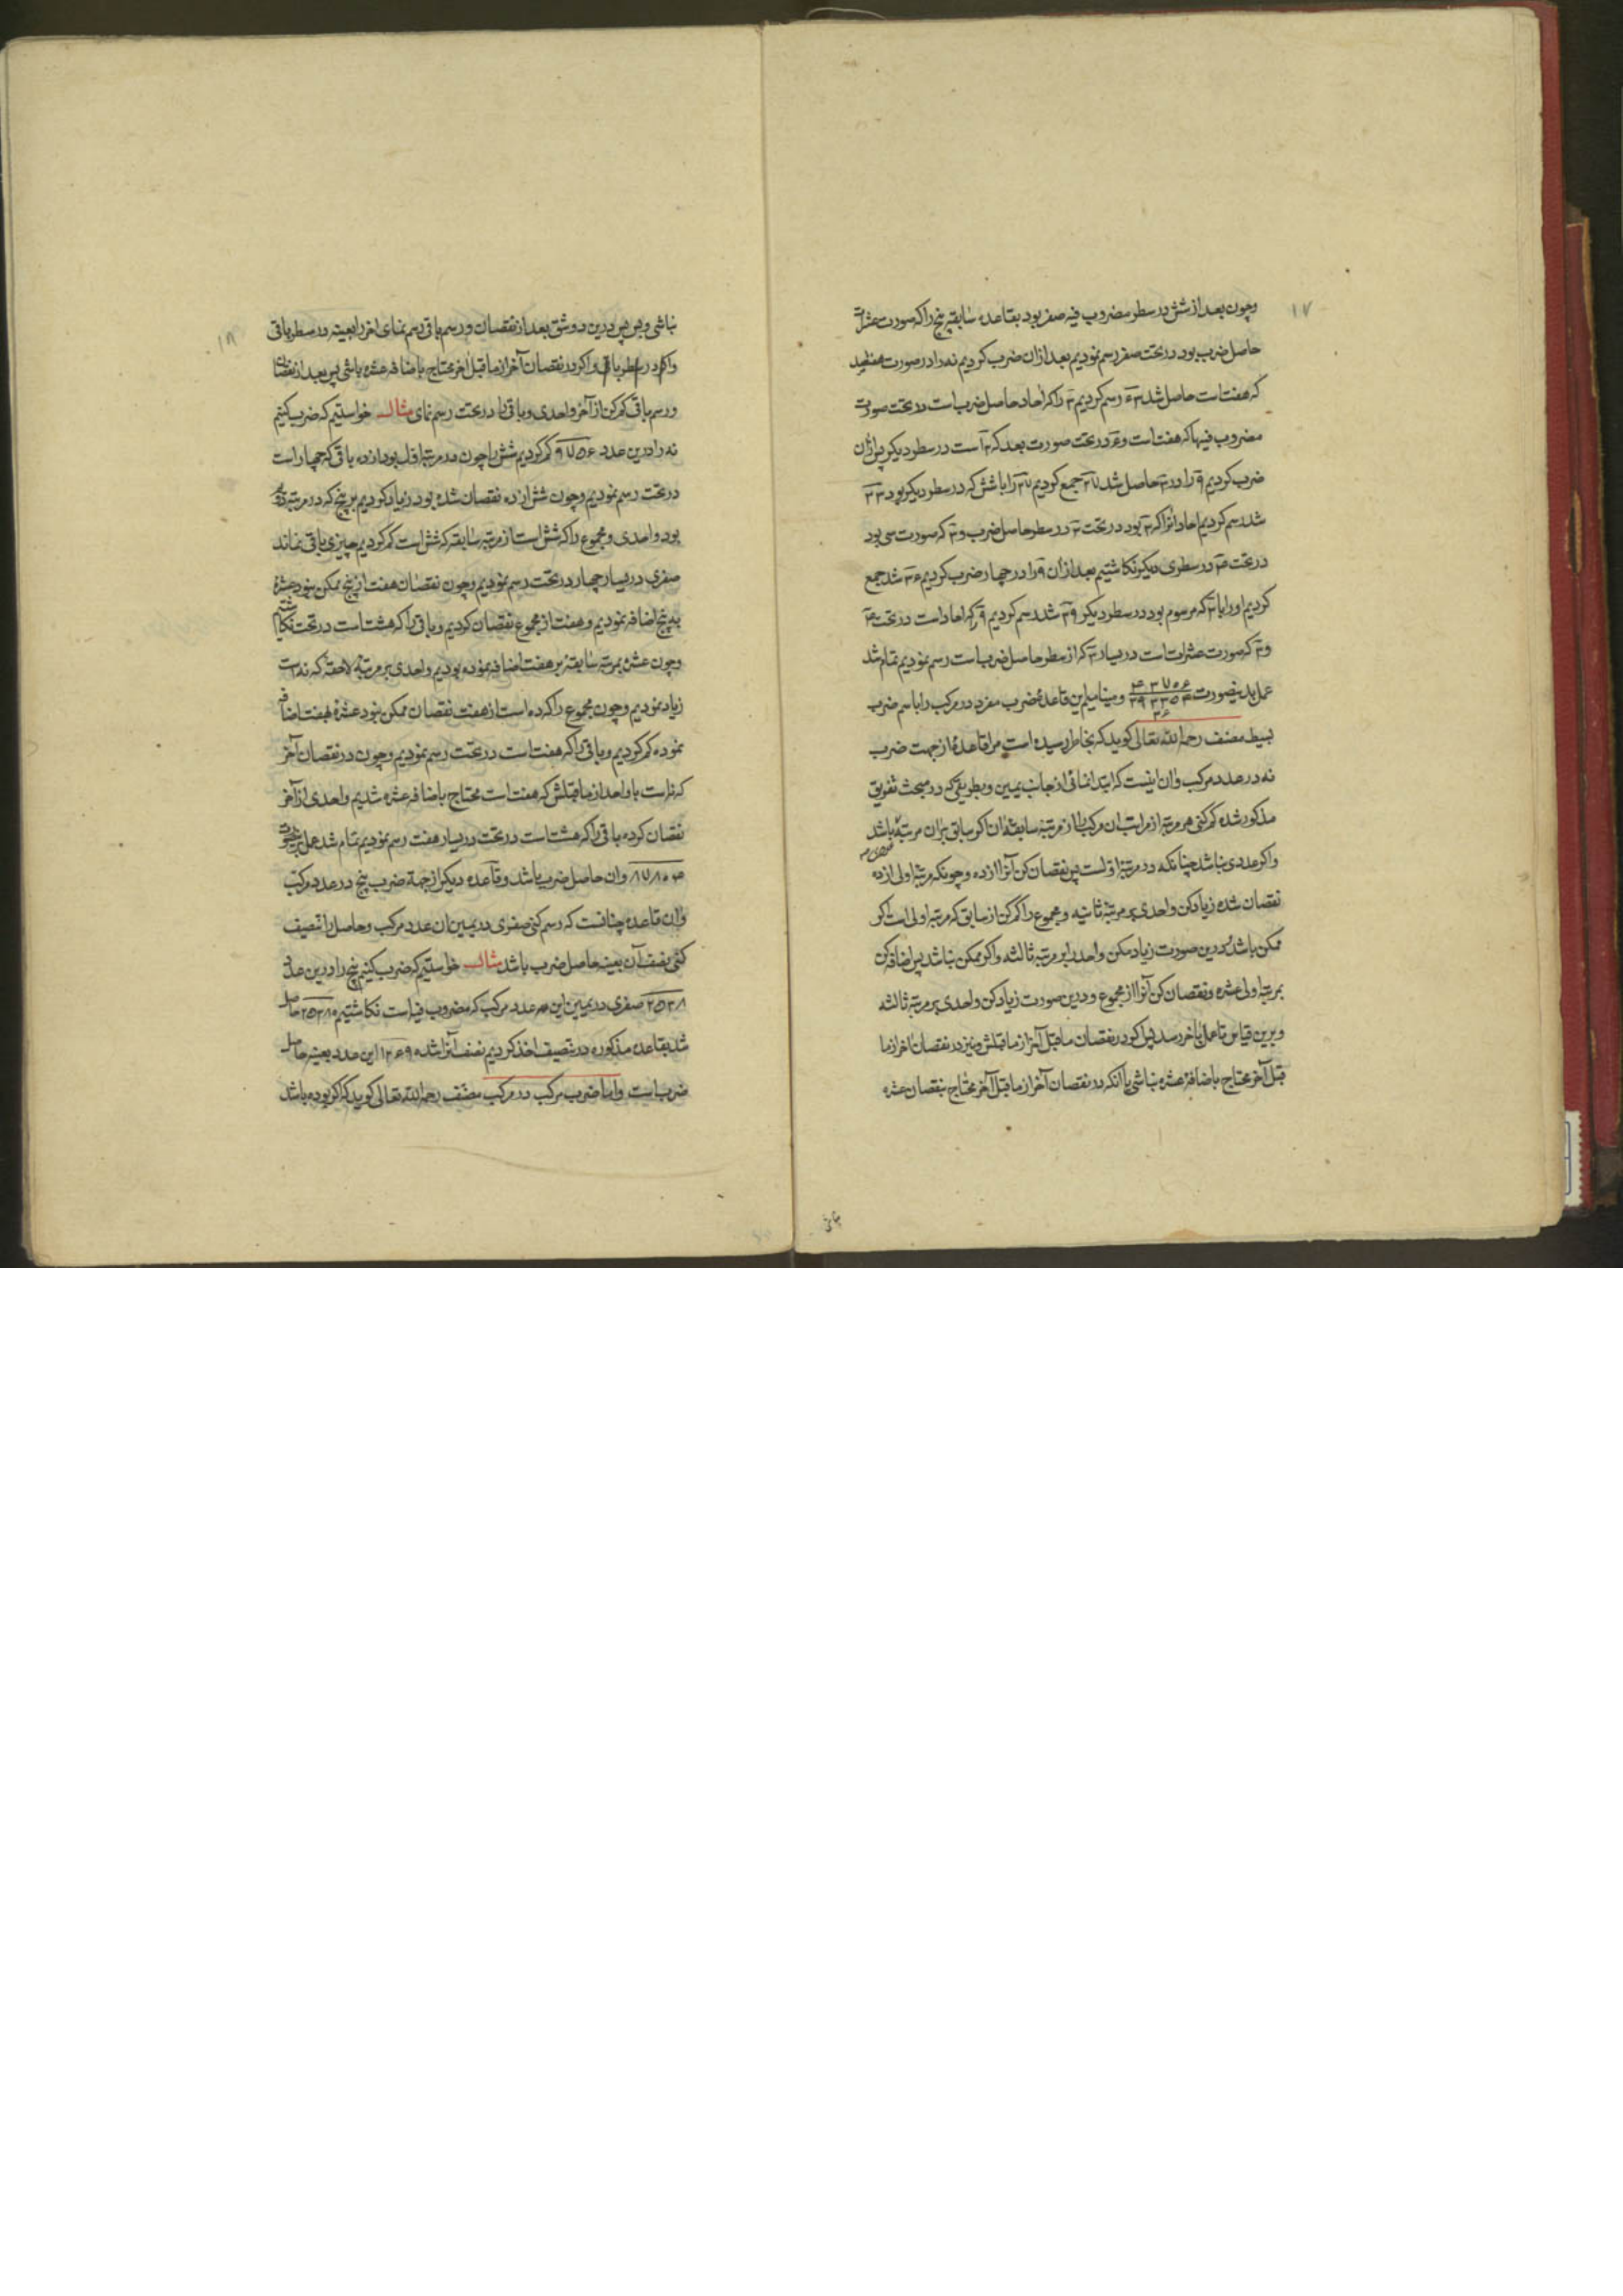 ۱۷
وچون بعد از شش در سطر مضروب فیه صفر بود بقاعده سابقه پنج را که صورت عشرات
حاصل ضرب بود در تحت صفر رسم نمودیم بعد از ان ضرب کردیم نه را در صورت هفتصد
که هفت است حاصل شد ۶۳ رسم کردیم ۳ را که احاد حاصل ضرب است در تحت صورت
مضروب فیها که هفت است و ۶ در تحت صورت بعد که ۳ است در سطر دیکر پس از ان
ضرب کردیم ۹ را در ۳ حاصل شد ۲۷ جمع کردیم ۲۷ را با شش که در سطر دیکر بود ۳۳
شد رسم کردیم احاد انرا که ۳ بود در تحت ۳ در سطر حاصل ضرب و ۳ که صورت سی بود
در تحت ۴ در سطری دیکر نکاشتیم بعد از ان ۹ را در چهار ضرب کردیم ۳۶ شد جمع
کردیم او را با ۳ که مرسوم بود در سطر دیکر ۳۹ شد رسم کردیم ۹ را که احاد است در تحت ۴
و ۳ که صورت عشرات است در یسار ۳ که از سطر حاصل ضرب است رسم نمودیم تمام شد
عمل بدینصورت ۴۳۷۰۶ ۳۹۳۳۵۴ ۳۶ و مینامیم این قاعدهٔ ضرب مفرد در مرکب را باسم ضرب
بسیط مصنف رحمه الله تعالی کوید که بخاطر رسیده است مرا قاعدهٔ از جهت ضرب
نه در عدد مرکب وان اینست که ابتدا نمائی از جانب یمین و بطریقی که در مبحث تفریق
مذکور شده کم کنی هر مرتبه از مراتب ان مرکب را از مرتبه سابقهٔ ان اکر سابق بران مرتبهٔ باشد
واکر عددی نباشد چنانکه در مرتبهٔ اولست پس نقصان کن آنرا از ده و چونکه مرتبهٔ اولی از ده
نقصان شده زیاد کن واحدی بر مرتبهٔ ثانیه و مجموع را کم کن از سابق که مرتبه اولی است اکر
ممکن باشد و درین صورت زیاد مکن واحد را بر مرتبه ثالثه واکر ممکن نباشد پس اضافه کن
بمرتبهٔ اولی عشره و نقصان کن آنرا از مجموع و درین صورت زیاد کن واحدی بر مرتبه ثالثه
و برین قیاس تا عمل باخر رسد پس اکر در نقصان ما قبل آخر از ما قبلش و نیز در نقصان اخر از ما
قبل آخر محتاج باضافهٔ عشره نباشی یا آنکه در نقصان آخر از ما قبل آخر محتاج بنقصان عشره
۱۸
نباشی و بس پس درین دو شق بعد از نقصان و رسم باقی رسم نمای اخر را بعینه در سطر باقی
واکر در سطر باقی واکر در نقصان آخر از ما قبل اخر محتاج باضافه عشره باشی پس بعد از نقصان
و رسم باقی کم کن از آخر واحدی و باقی را در تحت رسم نمای مثال خواستیم که ضرب کنیم
نه را درین عدد ۹۷۵۶ کم کردیم شش را چون در مرتبهٔ اول بود از ده باقی که چهار است
در تحت رسم نمودیم وچون شش از ده نقصان شده بود زیاد کردیم بر پنج که در مرتبه دوم
بود واحدی و مجموع را که شش است از مرتبه سابقه که شش است کم کردیم چیزی باقی نماند
صفری در یسار چهار در تحت رسم نمودیم وچون نقصان هفت از پنج ممکن نبود عشرهٔ
به پنج اضافه نمودیم و هفت از مجموع نقصان کردیم و باقی را که هشت است در تحت نکاشتیم
وچون عشره بمرتبه سابقه بر هفت اضافه نموده بودیم واحدی بر مرتبهٔ لاحقه که نه است
زیاد نمودیم وچون مجموع را که ده است از هفت نقصان ممکن نبود عشرهٔ بهفت اضافه
نموده کم کردیم و باقی را که هفت است در تحت رسم نمودیم وچون در نقصان آخر
که نه است با واحد از ما قبلش که هفت است محتاج باضافه عشره شدیم واحدی از آخر
نقصان کرده باقی را که هشت است در تحت در یسار هفت رسم نمودیم تمام شد عمل
۸۷۸۰۴ وان حاصل ضرب باشد و قاعده دیکر از جهة ضرب پنج در عدد مرکب
وان قاعده چنانست که رسم کنی صفری در یمین ان عدد مرکب و حاصل را تنصیف
کنی نصف آن بعینه حاصل ضرب باشد مثال خواستیم که ضرب کنیم پنج را درین عدد
۲۵۳۸ صفری در یمین این عدد مرکب که مضروب فیه است نکاشتیم ۲۵۳۸۰ حاصل
شد بقاعده مذکوره در تنصیف اخذ کردیم نصف آنرا شد ۱۲۶۹۰ این عدد بعینه حاصل
ضرب است واما ضرب مرکب در مرکب مصنف رحمه الله تعالی کوید که اکر بوده باشد